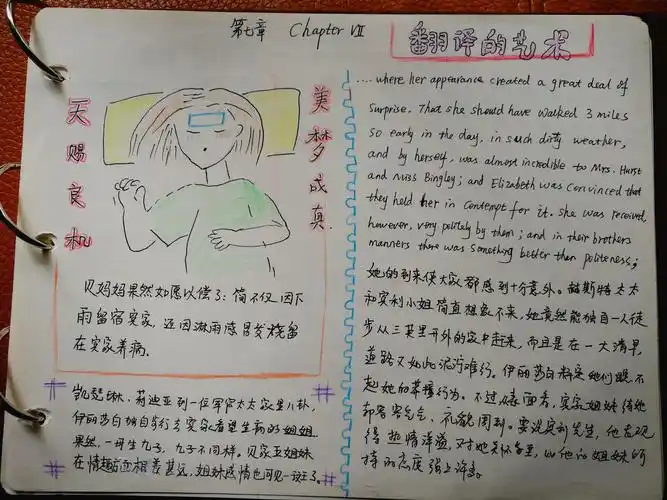 第七章 Chapter VII
翻译的艺术
天赐良机
美梦成真
贝妈妈果然如愿以偿了：简不仅因下
雨留宿宾家，还因淋雨感冒发烧留
在宾家养病。
凯瑟琳、莉迪亚到一位军官太太家里八卦，
伊丽莎白独自步行去宾家看望生病的姐姐
果然，一母生九子，九子不同样。贝家五姐妹
在情趣方面相差甚远，姐妹感情也可见一斑了。
.... where her appearance created a great deal of
surprise. That she should have walked 3 miles
so early in the day, in such dirty weather,
and by herself, was almost incredible to Mrs. Hurst
and Miss Bingley; and Elizabeth was convinced that
they held her in contempt for it. She was received,
however, very politely by them; and in their brothers
manners there was something better than politeness;
她的到来使大家都感到十分意外。赫斯特太太
和宾利小姐简直想象不来，她竟然能独自一人徒
步从三英里开外的家中赶来，而且是在一大清早，
道路又如此泥泞难行。伊丽莎白料定她们瞧不
起她的莽撞行为。不过表面看，宾家姐妹待她
却客客气气、礼貌周到。要说宾利先生，他表现
得热情洋溢，对她关怀备至，比他的姐妹的
持的态度强上许多。